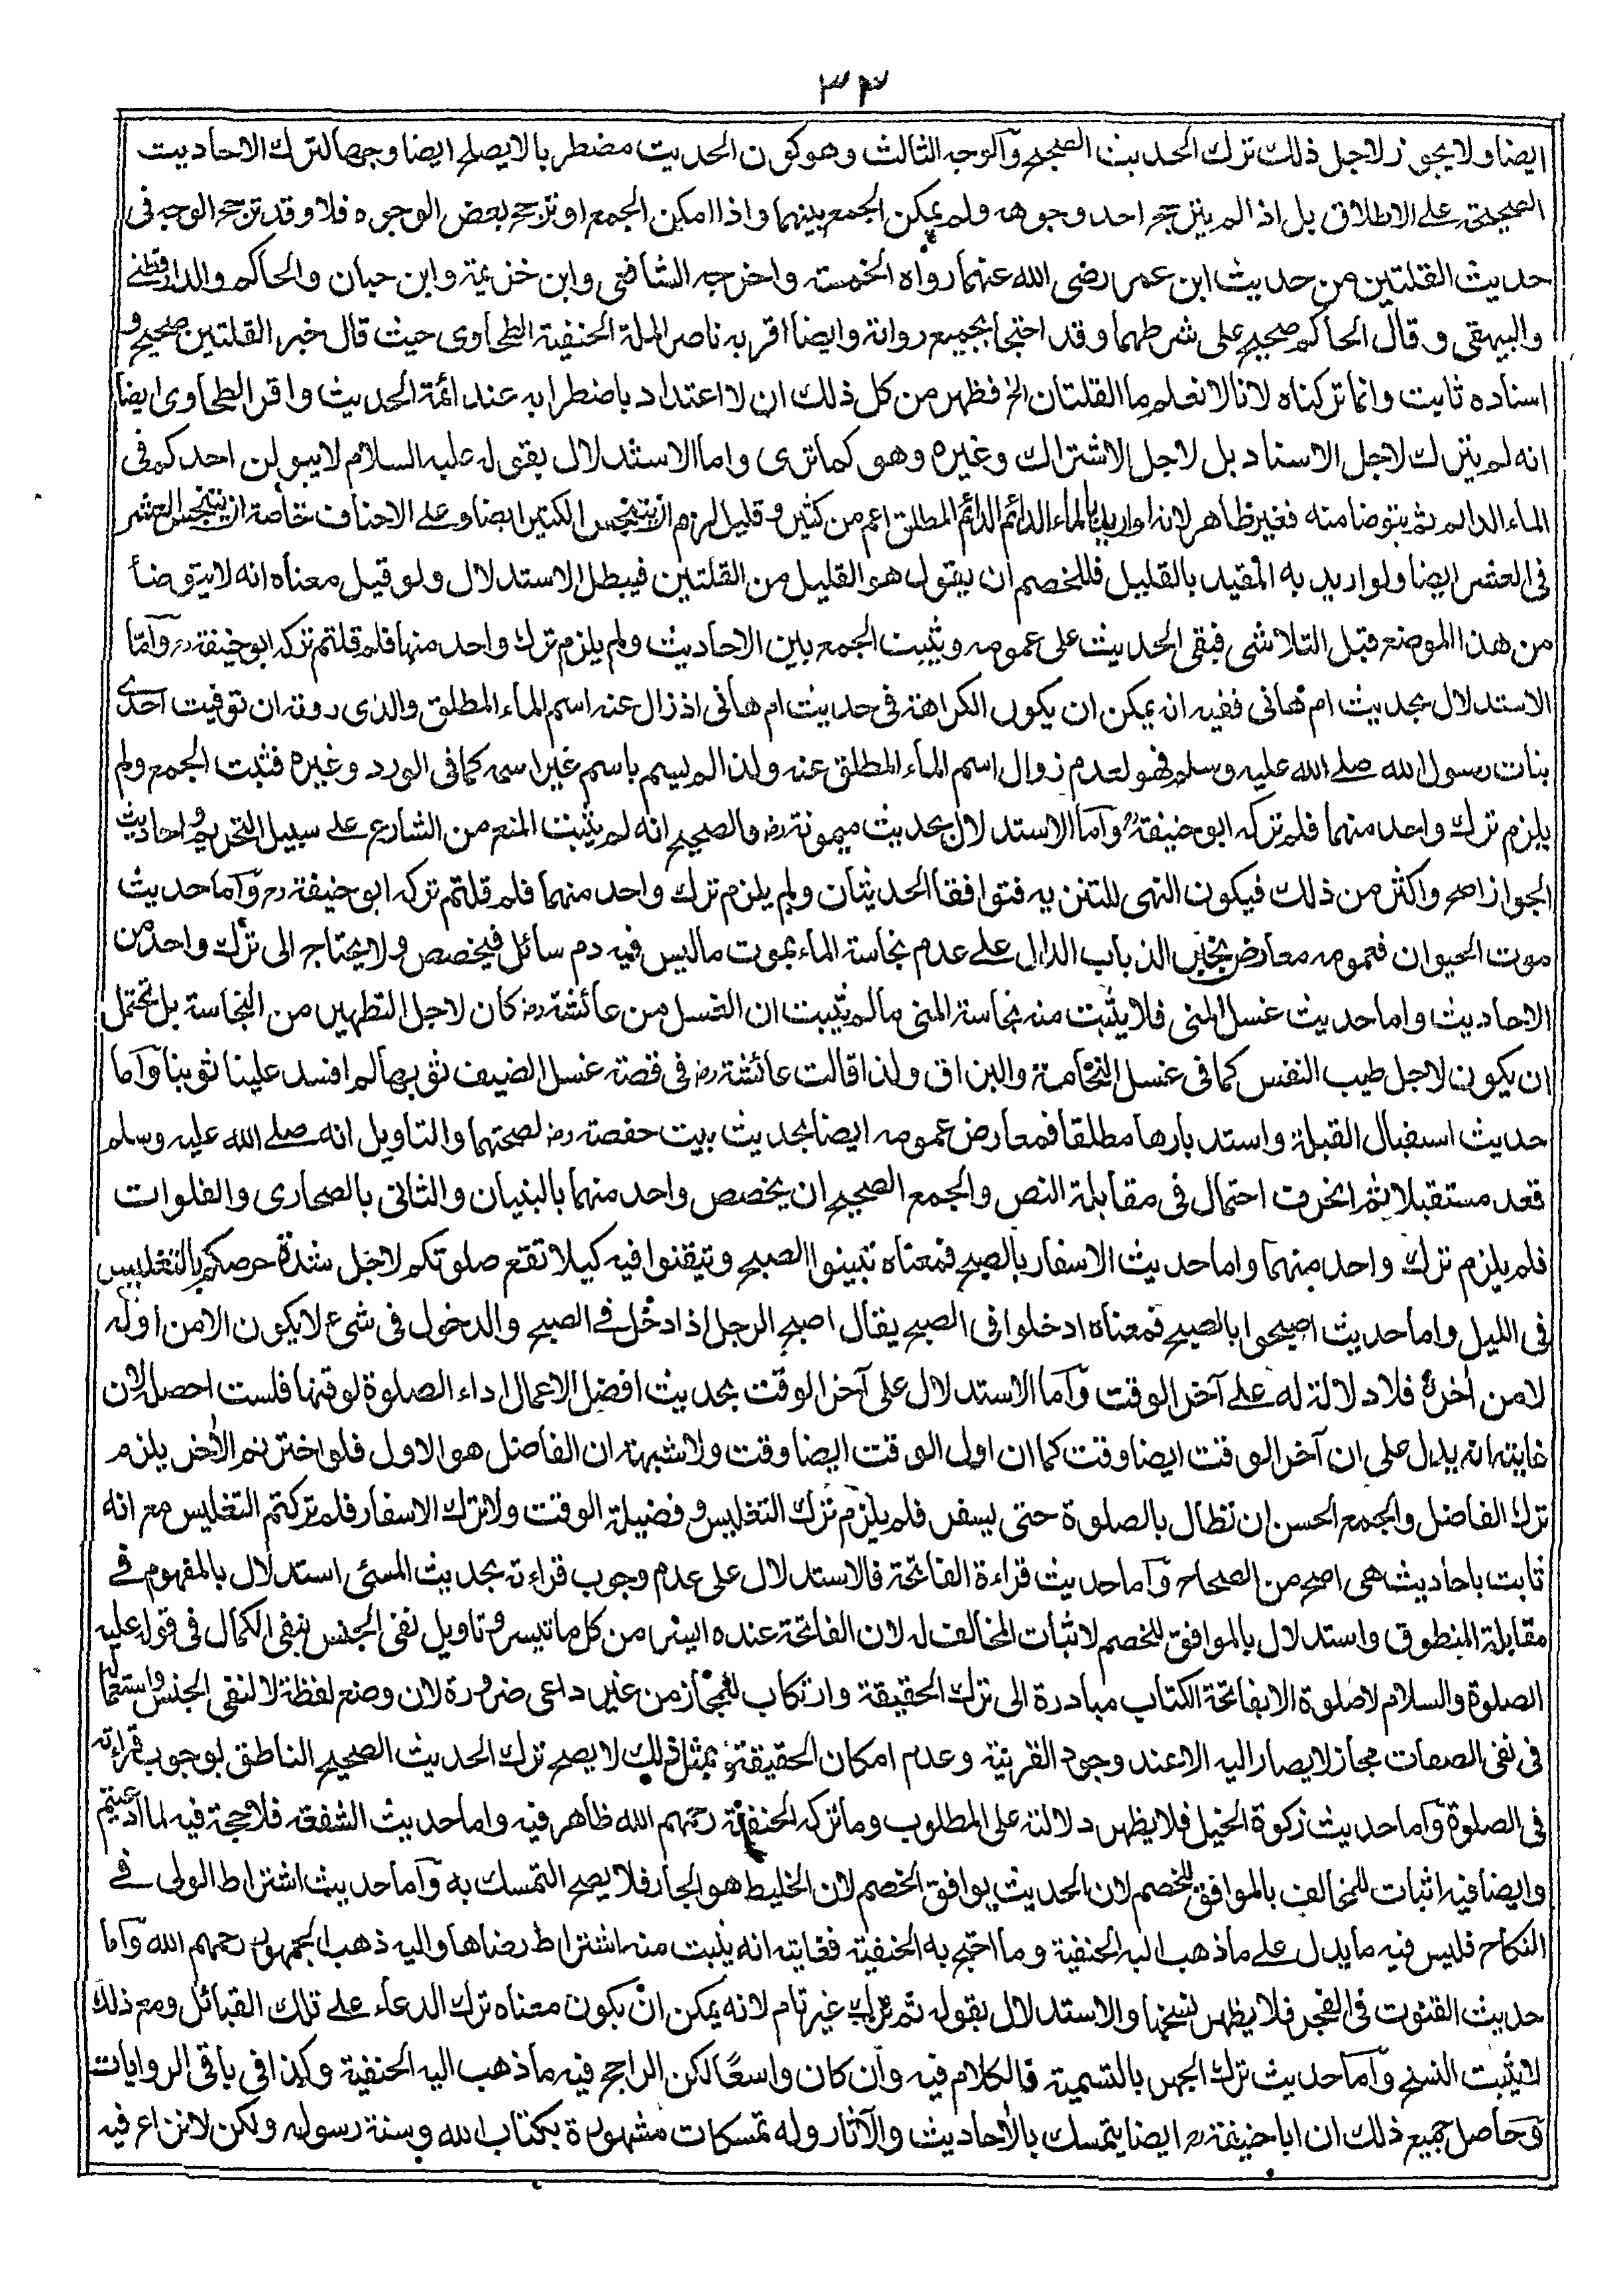 ٣٣
ايضا ولا يجوز لاجل ذلك ترك الحديث الصحيح وآلوجه الثالث وهو كون الحديث مضطربا لا يصلح ايضا وجها لترك الاحاديث
الصحيحة على الاطلاق بل اذا لم يترجح احد وجوهه ولم يمكن الجمع بينهما واذا امكن الجمع او ترجح بعض الوجوه فلا وقد ترجح الوجه فى
حديث القلتين من حديث ابن عمر رضى الله عنهما رواه الخمسة واخرجه الشافعى وابن خزيمة وابن حبان والحاكم والدارقطنے
والبيهقى وقال الحاكم صحيح على شرطهما وقد احتجا بجميع رواته وايضا اقر به ناصر الملة الحنفية الطحاوى حيث قال خبر القلتين صحيح و
اسناده ثابت وانما تركناه لانا لا نعلم ما القلتان الخ فظهر من كل ذلك ان لا اعتداد باضطرابه عند ائمة الحديث واقر الطحاوى ايضا
انه لم يترك لاجل الاسناد بل لاجل الاشتراك وغيره وهو كما ترى واما الاستدلال بقوله عليه السلام لا يبولن احدكم فى
الماء الدائم ثم يتوضا منه فغير ظاهر لانه لو اريد بالماء الدائم الدائم المطلق اعم من كثير وقليل لزم ان يتنجس الكثير ايضا وعلى الاحناف خاصة ان يتنجس العشر
فى العشر ايضا ولو اريد به المقيد بالقليل فللخصم ان يقول هو القليل من القلتين فيبطل الاستدلال ولو قيل معناه انه لا يتوضأ
من هذا الموضع قبل التلاشى فبقى الحديث على عمومه ويثبت الجمع بين الاحاديث ولم يلزم ترك واحد منها فلم قلتم تركه ابو حنيفة رح وآمّا
الاستدلال بحديث ام هانى ففيه انه يمكن ان يكون الكراهة فى حديث ام هانى اذ زال عنه اسم الماء المطلق والذى روته ان توفيت احدى
بنات رسول الله صلے الله عليه وسلم فهو لعدم زوال اسم الماء المطلق عنه ولذا لم يسم باسم غير اسمه كما فى الورد وغيره فثبت الجمع ولم
يلزم ترك واحد منهما فلم تركه ابو حنيفة رح وآما الاستدلال بحديث ميمونة رض والصحيح انه لم يثبت المنع من الشارع على سبيل التحريم واحاديث
الجواز اصح واكثر من ذلك فيكون النهى للتنزيه فتوافقا الحديثان ولم يلزم ترك واحد منهما فلم قلتم تركه ابو حنيفة رح وآما حديث
موت الحيوان فعمومه معارض بخبر الذباب الدال على عدم نجاسة الماء بموت ما ليس فيه دم سائل فيخصص ولا يحتاج الى ترك واحد من
الاحاديث واما حديث غسل المنى فلا يثبت منه نجاسة المنى ما لم يثبت ان الغسل من عائشة رض كان لاجل التطهير من النجاسة بل يحتمل
ان يكون لاجل طيب النفس كما فى غسل النخامة والبزاق ولذا قالت عائشة رض فى قصة غسل الضيف ثوبها لم افسد علينا ثوبنا وآما
حديث استقبال القبلة واستدبارها مطلقا فمعارض عمومه ايضا بحديث بيت حفصة رض لصحتهما والتاويل انه صلے الله عليه وسلم
قعد مستقبلا ثم انحرف احتمال فى مقابلة النص والجمع الصحيح ان يخصص واحد منهما بالبنيان والثانى بالصحارى والفلوات
فلم يلزم ترك واحد منهما واما حديث الاسفار بالصبح فمعناه تبينوا الصبح وتيقنوا فيه كيلا تقع صلوتكم لاجل شدة حرصكم بالتغليس
فى الليل واما حديث اصبحوا بالصبح فمعناه ادخلوا فى الصبح يقال اصبح الرجل اذا دخل فے الصبح والدخول فى شئ لا يكون الا من اوله
لا من آخره فلا دلالة له على آخر الوقت وآما الاستدلال على آخر الوقت بحديث افضل الاعمال اداء الصلوة لوقتها فلست احصله لان
غايته انه يدل على ان آخر الوقت ايضا وقت كما ان اول الوقت ايضا وقت ولا شبهة ان الفاضل هو الاول فلو اخترتم الآخر يلزم
ترك الفاضل والجمع الحسن ان تطال بالصلوة حتى يسفر فلم يلزم ترك التغليس وفضيلة الوقت ولا ترك الاسفار فلم تركتم التغليس مع انه
ثابت باحاديث هى اصح من الصحاح وآما حديث قراءة الفاتحة فالاستدلال على عدم وجوب قراءته بحديث المسئ استدلال بالمفهوم فے
مقابلة المنطوق واستدلال بالموافق للخصم لاثبات المخالف له لان الفاتحة عنده ايسر من كل ما تيسر وتاويل نفى الجنس بنفى الكمال فى قوله عليه
الصلوة والسلام لا صلوة الا بفاتحة الكتاب مبادرة الى ترك الحقيقة وارتكاب للمجاز من غير داعى ضرورة لان وضع لفظة لا لنفى الجنس واستعمالها
فى نفى الصفات مجاز لا يصار اليه الا عند وجود القرينة وعدم امكان الحقيقة و بمثل ذلك لا يصح ترك الحديث الصحيح الناطق بوجوب قراءته
فى الصلوة وآما حديث زكوة الخيل فلا يظهر دلالته على المطلوب وما تركه الحنفية رحمهم الله ظاهر فيه واما حديث الشفعة فلا حجة فيه لما ادعيتم
وايضا فيه اثبات للمخالف بالموافق للخصم لان الحديث يوافق الخصم لان الخليط هو الجار فلا يصح التمسك به وآما حديث اشتراط الولى فے
النكاح فليس فيه ما يدل على ما ذهب اليه الحنفية وما احتج به الحنفية فغايته انه يثبت منه اشتراط رضاها واليه ذهب الجمهور رحمهم الله وآما
حديث القنوت فى الفجر فلا يظهر نسخها والاستدلال بقوله ثم ترك غير تام لانه يمكن ان يكون معناه ترك الدعاء على تلك القبائل ومع ذلك
لا يثبت النسخ وآما حديث ترك الجهر بالتسمية فالكلام فيه وان كان واسعًا لكن الراجح فيه ما ذهب اليه الحنفية وكذا فى باقى الروايات
وحاصل جميع ذلك ان ابا حنيفة رح ايضا يتمسك بالاحاديث والآثار وله تمسكات مشهورة بكتاب الله وسنة رسوله ولكن لا نزاع فيه